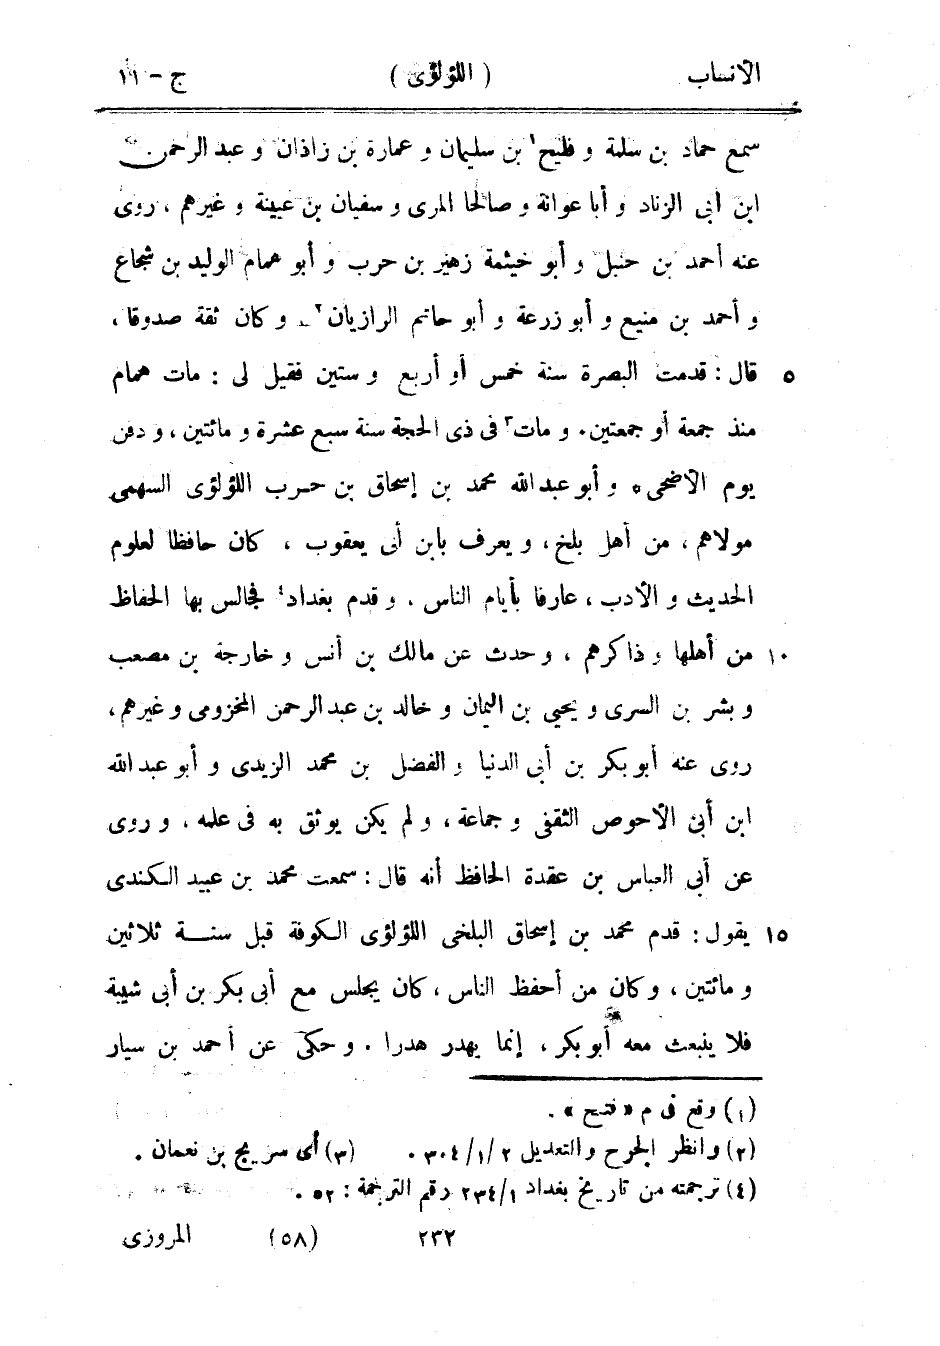 الأنساب ( اللؤلؤى ) ج - ١١
سمع حماد بن سلمة و فليح١ بن سليمان و عمارة بن زاذان و عبد الرحمن
ابن أبى الزناد و أبا عوانة و صالحا المرى و سفيان بن عيينة و غيرهم ، روى
عنه أحمد بن حنبل و أبو خيثمة زهير بن حرب و أبو همام الوليد بن شجاع
و أحمد بن منيع و أبو زرعة و أبو حاتم الرازيان٢ ـ و كان ثقة صدوقا ،
٥ قال : قدمت البصرة سنة خمس أو أربع و ستين فقيل لى : مات همام
منذ جمعة أو جمعتين . و مات٣ فى ذى الحجة سنة سبع عشرة و مائتين ، و دفن
يوم الأضحى ٥ و أبو عبد الله محمد بن إسحاق بن حرب اللؤلؤى السهمى
مولاهم ، من أهل بلخ ، و يعرف بابن أبى يعقوب ، كان حافظا لعلوم
الحديث و الأدب ، عارفا بأيام الناس . و قدم بغداد٤ فجالس بها الحفاظ
١٠ من أهلها و ذاكرهم ، و حدث عن مالك بن أنس و خارجة بن مصعب
و بشر بن السرى و يحيى بن اليمان و خالد بن عبد الرحمن المخزومى و غيرهم ،
روى عنه أبو بكر بن أبى الدنيا و الفضل بن محمد الزيدى و أبو عبد الله
ابن أبى الأحوص الثقفى و جماعة ، و لم يكن يوثق به فى علمه . و روى
عن أبى العباس بن عقدة الحافظ أنه قال : سمعت محمد بن عبيد الكندى
١٥ يقول : قدم محمد بن إسحاق البلخى اللؤلؤى الكوفة قبل سنة ثلاثين
و مائتين ، و كان من أحفظ الناس ، كان يجلس مع أبى بكر بن أبى شيبة
فلا ينبعث معه أبو بكر ، إنما يهدر هدرا . و حكى عن أحمد بن سيار
(١) وقع فى م « فتيح » .
(٢) وانظر الجرح والتعديل ٢ /١/ ٣٠٤ . (٣) أى سريج بن نعمان .
(٤) ترجمته من تاريخ بغداد ١/ ٢٣٤ رقم الترجمة : ٥٢ .
٢٣٢ (٥٨) المروزى